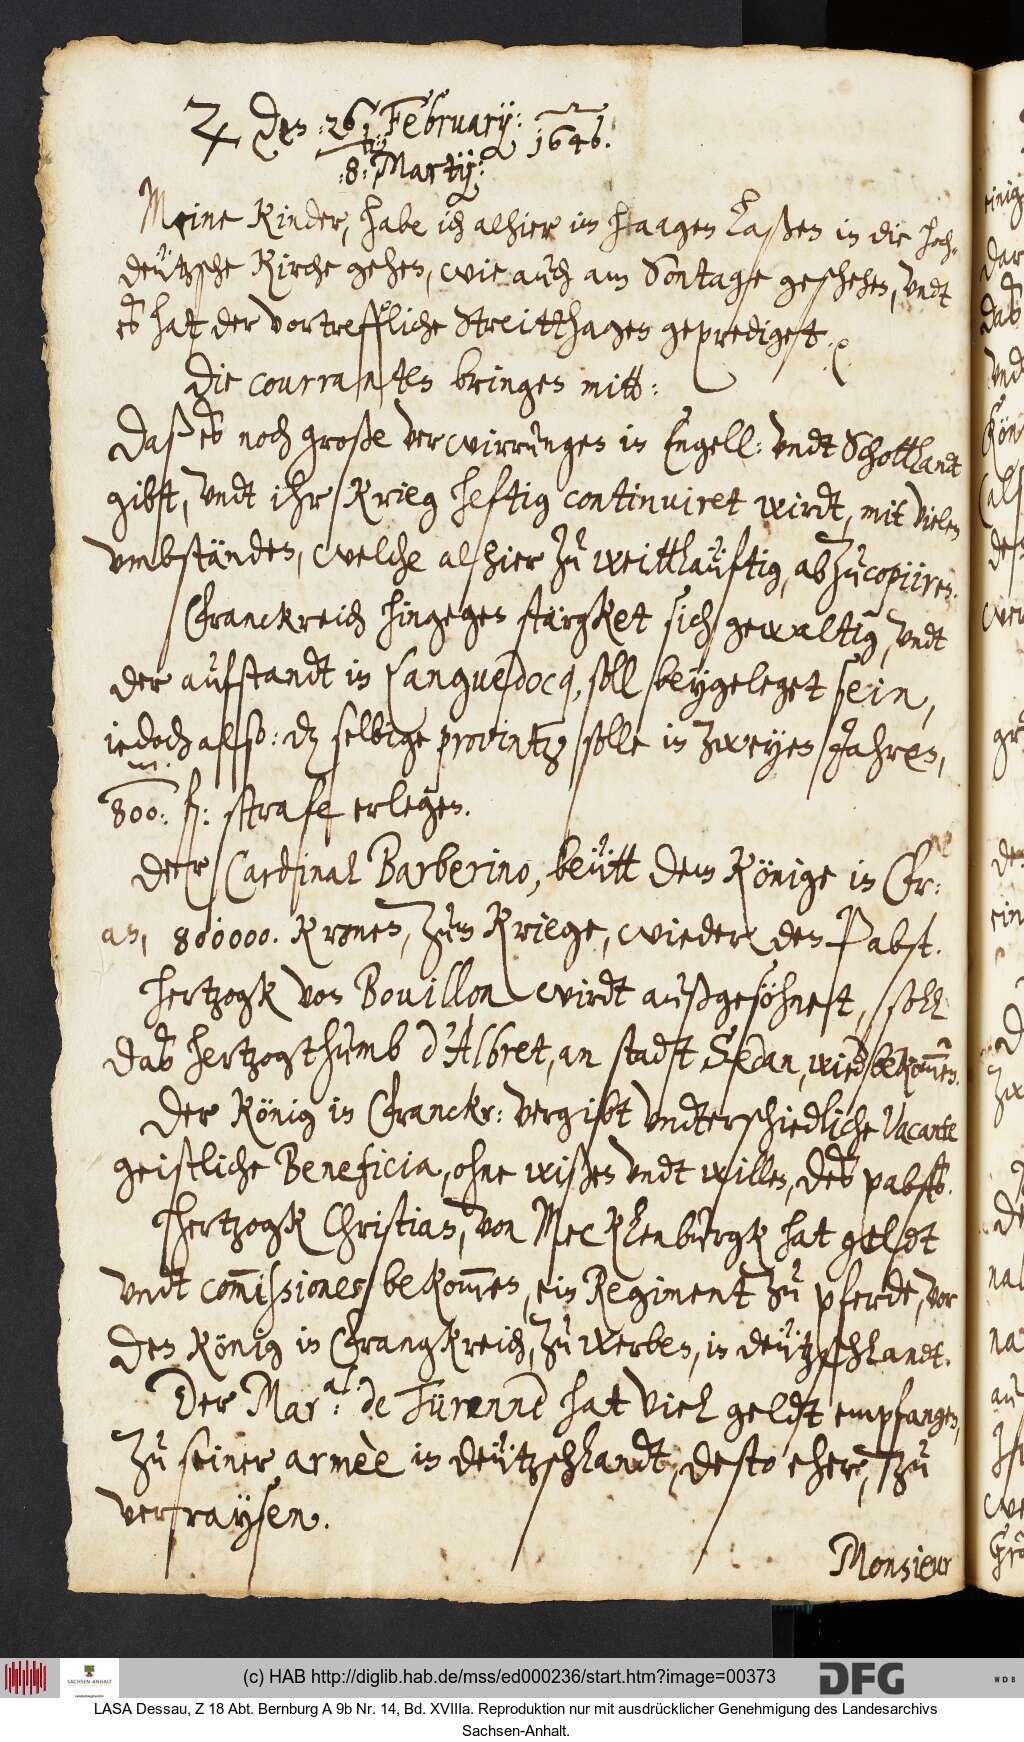 ♃ den :26. February: 1646.
:8: Martij:
Meine Kinder, habe ich alhier im Haagen laßen in die hoch-
deützsche Kirche gehen, wie auch am Sontage geschehen, vndt
es hat der vortreffliche Streitthagen geprediget.
Die courranten bringen mitt:
Daß es noch große verwirrungen in Engell: vndt Schottlandt
gibt, vndt ihr Krieg heftig continuiret wirdt, mit vielen
vmbständen, welche alhier zu weittlaüftig, abzucopiiren.
Franckreich hingegen stärgket sich gewaltig, vndt
der aufstandt in Languedocq, soll beygeleget sein,
iedoch also: dz selbige provintz solle in zweyen Jahren,
800: fl: strafe erlegen.
Der Cardinal Barberino, beütt dem Könige in Fr:
an, 800000. Kronen, zum Kriege, wieder den Pabst.
Hertzogk von Bouillon wirdt außgesöhnet, soll
das Hertzogthumb d'Albret, an stadt Sedan, wied bekom̄en.
Der König in Franckr: vergibt vndterschiedliche Vacante
geistliche Beneficia, ohne wißen vndt willen, des pabsts.
Hertzogk Christian, von Mecklenburgk hat geldt
vndt com̄issiones bekom̄en, ein Regiment zu pferde, vor
den König in Frangkreich, zu werben, in deützschlandt.
Der Mar:al: de Türenne hat viel geldt empfangen,
zu seiner armèe in deützschlandt, desto eher, zu
verraysen.
Monsieur
(c) HAB http://diglib.hab.de/mss/ed000236/start.htm?image=00373
SACHSEN-ANHALT
DFG
WDB
LASA Dessau, Z 18 Abt. Bernburg A 9b Nr. 14, Bd. XVIIIa. Reproduktion nur mit ausdrücklicher Genehmigung des Landesarchivs
Sachsen-Anhalt.